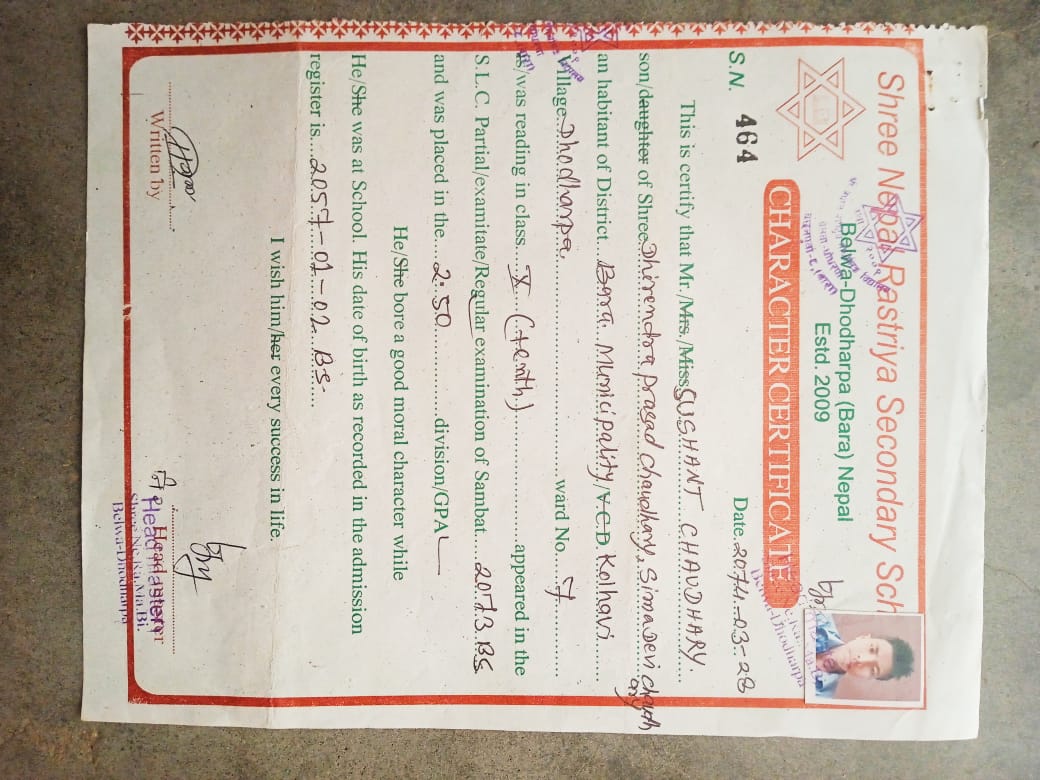 Shree Nepal Rastriya Secondary Sch
Belwa-Dhodharpa (Bara) Nepal
Estd. 2009
CHARACTER CERTIFICATE
S.N. 464
Date. 2074-03-28
This is certify that Mr./Mrs./Miss SUSHANT CHAUDHARY.
son/daughter of Shree Dhirendra prasad chaudhary, Sima Devi chaudhary
an habitant of District... Bara Municipality/V.C.D. Kolhavi
Village. Dhodharpa ward No. 7
is/was reading in class X (tenth) appeared in the
S.L.C. Partial/examitate/Regular examination of Sambat.... 2073 BS
and was placed in the... 2.50 division/GPA
He/She bore a good moral character while
He/She was at School. His date of birth as recorded in the admission
register is... 2057-01-02 BS.
I wish him/her every success in life.
Written by
Head master
Head master
Shree Ne.Ra.Ma.Bi.
Belwa-Dhodharpa